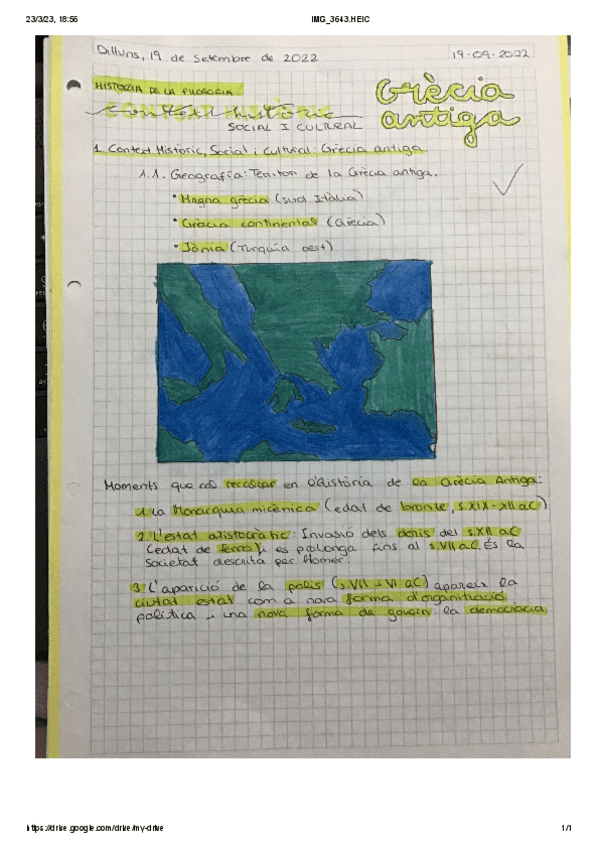 23/3/23, 18:56
IMG_3643.HEIC
Dilluns, 19 de Setembre de 2022
19-09-2022
HISTÒRIA DE LA FILOSOFIA
Grècia antiga
CONTEXT HISTÒRIC
SOCIAL I CULTURAL
1. Context Històric, Social i Cultural: Grècia antiga
1.1. Geografía: Territori de la Grècia antiga.
• Magna grècia (sud Itàlia)
• Grècia continental (Grècia)
• Jònia (Turquia oest)
Moments que cal recalcar en l'història de la Grècia Antiga:
1. La Monarquia micènica (edat de bronze, s.XIX-XII aC)
2. L'estat aristocràtic: Invasió dels doris del s.XII aC
(edat de ferro), i es prolonga fins al s.VII aC. És la
societat descrita per Homer.
3. L'aparició de la polis (s.VII - VI aC) apareix la
ciutat estat com a nova forma d'organització
política i una nova forma de govern: la democràcia
https://drive.google.com/drive/my-drive
1/1